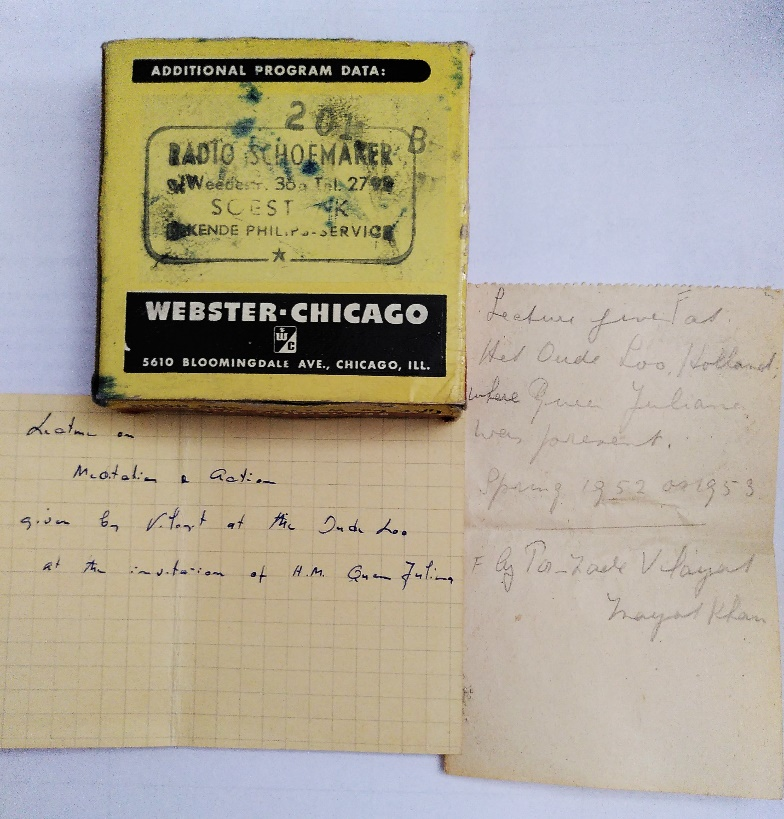 ADDITIONAL PROGRAM DATA:
201
B-
RADIO SCHOEMAKER
Weedestr. 36a Tel. 279
SOEST K
KENDE PHILIPS-SERVICE
WEBSTER·CHICAGO
W C
5610 BLOOMINGDALE AVE., CHICAGO, ILL.
Lecture on
Meditation & Action
given by Vilayat at the Oude Loo
at the invitation of H.M. Queen Juliana
Lecture given at
Het Oude Loo, Holland.
where Queen Juliana
was present.
Spring 1952 or 1953
by Pir-Zade Vilayat
Inayat Khan